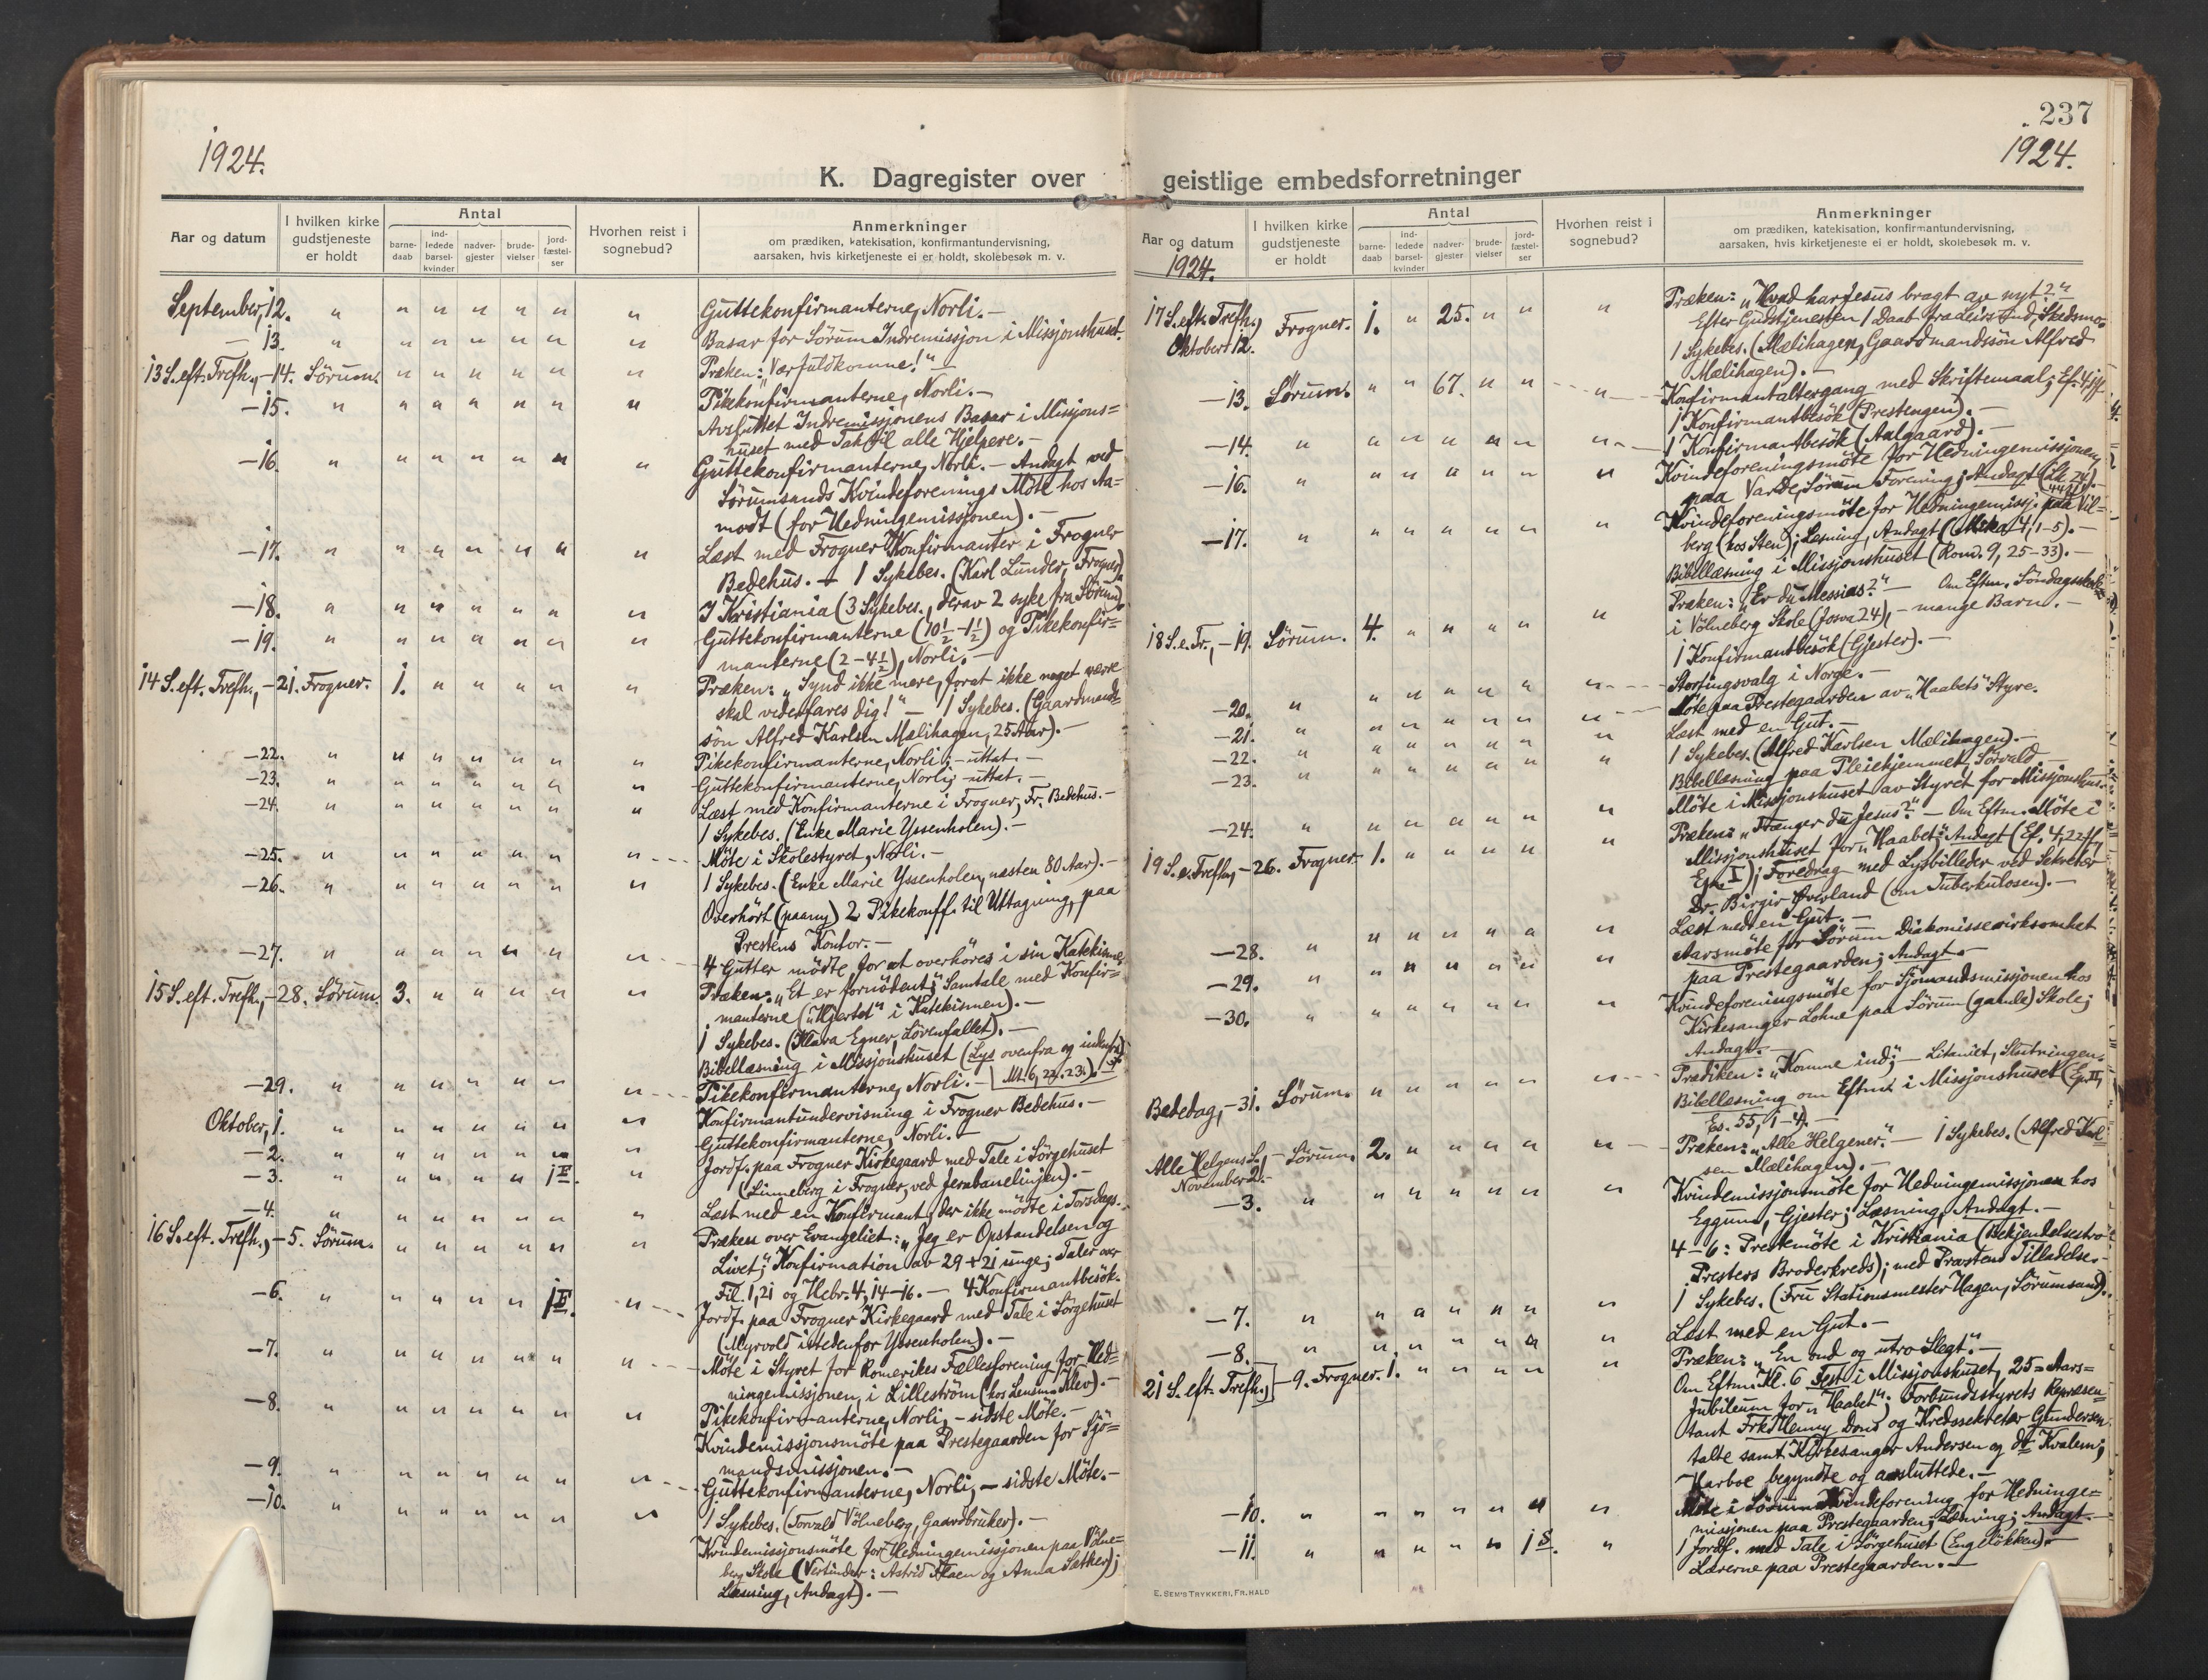 1924.
K. Dagregister over
Aar og datum
I hvilken kirke gudstjeneste er holdt
Antal
barne-daab
ind-ledede barsel-kvinder
nadver-gjester
brude-vielser
jord-fæstel-ser
Hvorhen reist i sognebud?
Anmerkninger
om prædiken, katekisation, konfirmantundervisning,
aarsaken, hvis kirketjeneste ei er holdt, skolebesøk m. v.
September, 12. " " " " " " " Guttekonfirmanterne, Norli. —
— 13. " " " " " " " Basar for Sörum Indremissjon i Missjonshuset.
13 S. eft. Trefh., — 14. Sörum. " " " " " " Præken: „Vær fuldkomne!" —
— 15. " " " " " " " Pikekonfirmanterne, Norli. —
Avsluttet Indremissjonens Basar i Missjons=
huset med Tak til alle Hjelpere. —
— 16. " " " " " " " Guttekonfirmanterne, Norli. — Andagt ved
Sörumsands Kvindeforenings Möte hos Aa=
modt (for Hedningemissjonen). —
— 17. " " " " " " " Læst med Frogner Konfirmanter i Frogner
Bedehus. — 1 Sykebes. (Karl Lunder, Frogner)
— 18. " " " " " " " I Kristiania (3 Sykebes., derav 2 syke fra Sörum).
— 19. " " " " " " " Guttekonfirmanterne (10½–1½) og Pikekonfir=
manterne (2–4½), Norli. —
14 S. eft. Trefh., — 21. Frogner. 1. " " " " " Præken: „Synd ikke mere, forat ikke noget værre
skal vederfares dig!" — 1 Sykebes. (Gaardmands=
sön Alfred Karlsen Mælihagen, 25 Aar). —
— 22. " " " " " " " Pikekonfirmanterne, Norli; – uttat. —
— 23. " " " " " " " Guttekonfirmanterne, Norli; – uttat. —
— 24. " " " " " " " Læst med Konfirmanterne i Frogner, Fr. Bedehus. —
1 Sykebes. (Enke Marie Yssenholen). —
— 25. " " " " " " " Möte i Skolestyret, Norli. —
— 26. " " " " " " " 1 Sykebes. (Enke Marie Yssenholen, næsten 80 Aar). —
Overhört (paany) 2 Pikekonff. til Uttagning, paa
Prestens Kontor. —
— 27. " " " " " " " 4 Gutter mödte for at overhöres i sin Katekisme
15 S. eft. Trefh., — 28. Sörum. 3. " " " " " Præken: „Et er fornödent"; Samtale med Konfir=
manterne („Hjertet" i Katekismen). —
1 Sykebes. (Klara Egner, Sörenfallet). —
Bibellæsning i Missjonshuset (Lys ovenfra og indenfra)
Mt. 6, 22. 23.)
— 29. " " " " " " " Pikekonfirmanterne, Norli. —
Oktober, 1. " " " " " " " Konfirmantundervisning i Frogner Bedehus. —
— 2. " " " " " " " Guttekonfirmanterne, Norli. —
— 3. " " " " " 1 F. " Jordf. paa Frogner Kirkegaard med Tale i Sörgehuset
(Linneberg i Frogner, ved Jernbanelinjen). —
— 4. " " " " " " " Læst med en Konfirmant, der ikke mödte i Torsdags.
16 S. eft. Trefh., — 5. Sörum. " " " " " " Præken over Evangeliet: „Jeg er Opstandelsen og
Livet"; Konfirmation av 29 + 21 unge; Taler over
Fil. 1, 21 og Hebr. 4, 14–16. — 4 Konfirmantbesök.
— 6. " " " " " 1 F. " Jordf. paa Frogner Kirkegaard med Tale i Sörgehuset
(Myrvold istedenfor Yssenholen). —
— 7. " " " " " " " Möte i Styret for Romerikes Fællesforening for Hed=
ningemissjonen, i Lilleström (hos Lensm. Alev). —
— 8. " " " " " " " Pikekonfirmanterne, Norli, – sidste Möte. —
Kvindemissjonsmöte paa Prestegaarden for Sjö=
mandsmissjonen. —
— 9. " " " " " " " Guttekonfirmanterne, Norli, — sidste Möte. —
— 10. " " " " " " " 1 Sykebes. (Torvald Völneberg, Gaardbruker). —
Kvindemissjonsmöte for Hedningemissjonen paa Völne=
berg Skole (Vertinder: Astrid og Anna Sæther);
Læsning, Andagt). —
237
1924.
geistlige embedsforretninger
Aar og datum
1924.
I hvilken kirke gudstjeneste er holdt
Antal
barne-daab
ind-ledede barsel-kvinder
nadver-gjester
brude-vielser
jord-fæstel-ser
Hvorhen reist i sognebud?
Anmerkninger
om prædiken, katekisation, konfirmantundervisning,
aarsaken, hvis kirketjeneste ei er holdt, skolebesøk m. v.
17 S. eft. Trefh., Oktober 12. Frogner. 1. " 25. " " " Præken: „Hvad har Jesus bragt av nyt?"
Efter Gudstjenesten 1 Daab fra Skedsmo.
1 Sykebes. (Mælihagen, Gaardmandssön Alfred
Mælihagen). —
— 13. Sörum. " " 67. " " " Konfirmantaltergang med Skriftemaal; Ef. 4,
1 Konfirmantbesök (Prestengen). —
— 14. " " " " " " " 1 Konfirmantbesök (Aalgaard). —
— 16. " " " " " " " Kvindeforeningsmöte for Hedningemissjonen
paa Varde, Sörum Forening; Andagt (Lk. 24). —
— 17. " " " " " " " Kvindeforeningsmöte for Hedningemissj. paa Vil=
berg (hos Sten); Læsning, Andagt (Mika 4, 1–5). —
Bibellæsning i Missjonshuset (Rom. 9, 25–33). —
18 S. e. Tr., — 19. Sörum. 4. " " " " " Præken: „Er du Messias?" — Om Eftm. Söndagsskole
i Völneberg Skole (Josva 24), – mange Barn. —
1 Konfirmantbesök (Gjester). —
— 20. " " " " " " " Stortingsvalg i Norge. —
— 21. " " " " " " " Möte paa Prestegaarden av „Haabets" Styre.
— 22. " " " " " " " Læst med en Gut. —
— 23. " " " " " " " 1 Sykebes. (Alfred Karlsen Mælihagen). —
Bibellæsning paa Pleiehjemmet, Sörvald. —
— 24. " " " " " " " Möte i Missjonshuset av Styret for Missjonshus.
19 S. e. Trefh., — 26. Frogner. 1. " " " " " Præken: „Trænger du Jesus?" — Om Eftm. Möte i
Missjonshuset for „Haabet"; Andagt (Ef. 4, 22 ff,
I); Foredrag med Lysbilleder ved Sekretær
Dr. Birgir Överland (om Tuberkulosen). —
— 28. " " " " " " " Læst med en Gut. —
— 29. " " " " " " " Aarsmöte for Sörum Diakonissevirksomhet
paa Prestegaarden; Andagt. —
— 30. " " " " " " " Kvindeforeningsmöte for Sjömandsmissjonen hos
Kirkesanger Lohne paa Sörum (gamle) Skole;
Andagt. —
Bededag, — 31. Sörum. " " " " " " Prædiken: „Komme ind"; — Litaniet, Slutningen.
Bibellæsning om Eftm. i Missjonshuset (Ep. II,
Es. 55, 1–4). —
Alle Helgens S., November 2. — Sörum. 2. " " " " " Præken: „Alle Helgener". — 1 Sykebes. (Alfred Karl=
sen Mælihagen). —
— 3. " " " " " " " Kvindemissjonsmöte for Hedningemissjonen hos
Eggum, Gjester; Læsning, Andagt. —
4–6: Prestemöte i Kristiania (Bekjendelsestro
Presters Broderkreds); med Provstens Tilladelse.
— 7. " " " " " " " 1 Sykebes. (Fru Stationsmester Hagen, Sörumsand).
— 8. " " " " " " " Læst med en Gut. —
21 S. eft. Trefh., — 9. Frogner. 1. " " " " " Præken: „En ond og utro Slegt." —
Om Eftm. Kl. 6 Fest i Missjonshuset, 25=Aars=
Jubileum for „Haabet"; Forbundsstyrets Repræsen=
tant Frk. Henny Dons og Kredssekretær Gundersen
talte samt Kirkesanger Andersen og Kvalem;
Harboe begyndte og avsluttede. —
— 10. " " " " " " " Möte i Sörum Kvindeforening for Hedninge=
missjonen paa Prestegaarden; Læsning; Andagt. —
— 11. " " " " " 1 S. " 1 Jordf. med Tale i Sörgehuset (Englökken). —
Lærerne paa Prestegaarden. —
E. SEM'S TRYKKERI, FR.HALD